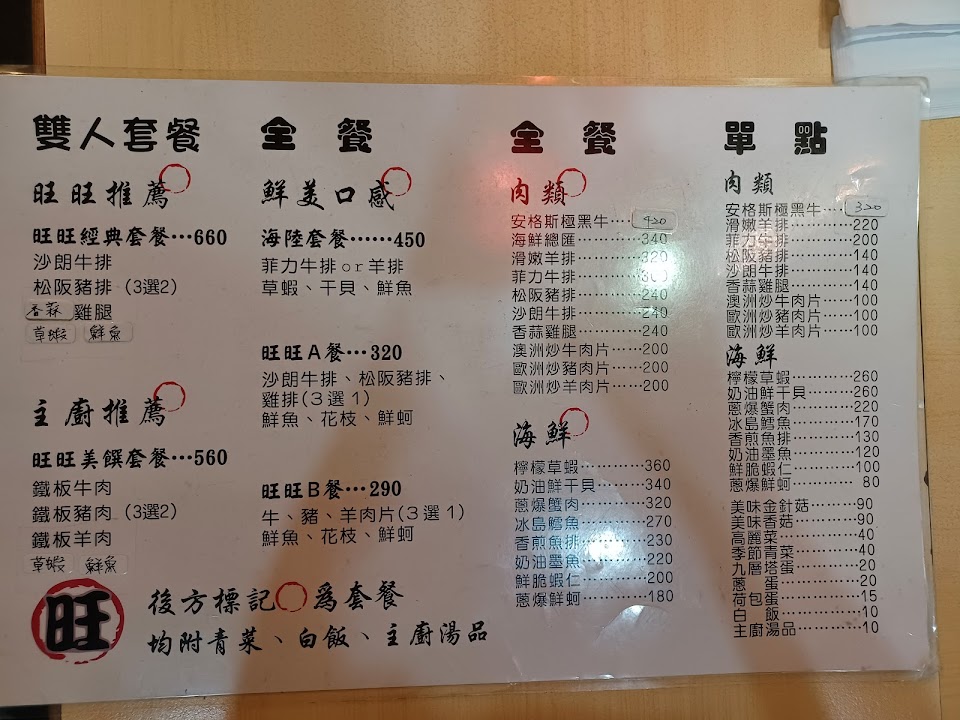 雙人套餐
旺旺推薦
旺旺經典套餐…660
沙朗牛排
松阪豬排 (3選2)
香蒜雞腿
草蝦 鮮魚
主廚推薦
旺旺美饌套餐…560
鐵板牛肉
鐵板豬肉 (3選2)
鐵板羊肉
草蝦 鮮魚
全餐
鮮美口感
海陸套餐……450
菲力牛排or羊排
草蝦、干貝、鮮魚
旺旺A餐…320
沙朗牛排、松阪豬排、
雞排(3選1)
鮮魚、花枝、鮮蚵
旺旺B餐…290
牛、豬、羊肉片(3選1)
鮮魚、花枝、鮮蚵
旺
後方標記○為套餐
均附青菜、白飯、主廚湯品
全餐
肉類
安格斯極黑牛…420
海鮮總匯…………340
滑嫩羊排…………320
菲力牛排…………300
松阪豬排…………240
沙朗牛排…………240
香蒜雞腿…………240
澳洲炒牛肉片……200
歐洲炒豬肉片……200
歐洲炒羊肉片……200
海鮮
檸檬草蝦…………360
奶油鮮干貝………340
蔥爆蟹肉…………320
冰島鱈魚…………270
香煎魚排…………230
奶油墨魚…………220
鮮脆蝦仁…………200
蔥爆鮮蚵…………180
單點
肉類
安格斯極黑牛…320
滑嫩羊排…………220
菲力牛排…………200
松阪豬排…………140
沙朗牛排…………140
香蒜雞腿…………140
澳洲炒牛肉片……100
歐洲炒豬肉片……100
歐洲炒羊肉片……100
海鮮
檸檬草蝦…………260
奶油鮮干貝………260
蔥爆蟹肉…………220
冰島鱈魚…………170
香煎魚排…………130
奶油墨魚…………120
鮮脆蝦仁…………100
蔥爆鮮蚵…………80
美味金針菇………90
美味香菇…………90
高麗菜……………40
季節青菜…………40
九層塔蛋…………20
蔥 蛋……………20
荷包蛋……………15
白 飯……………10
主廚湯品…………10